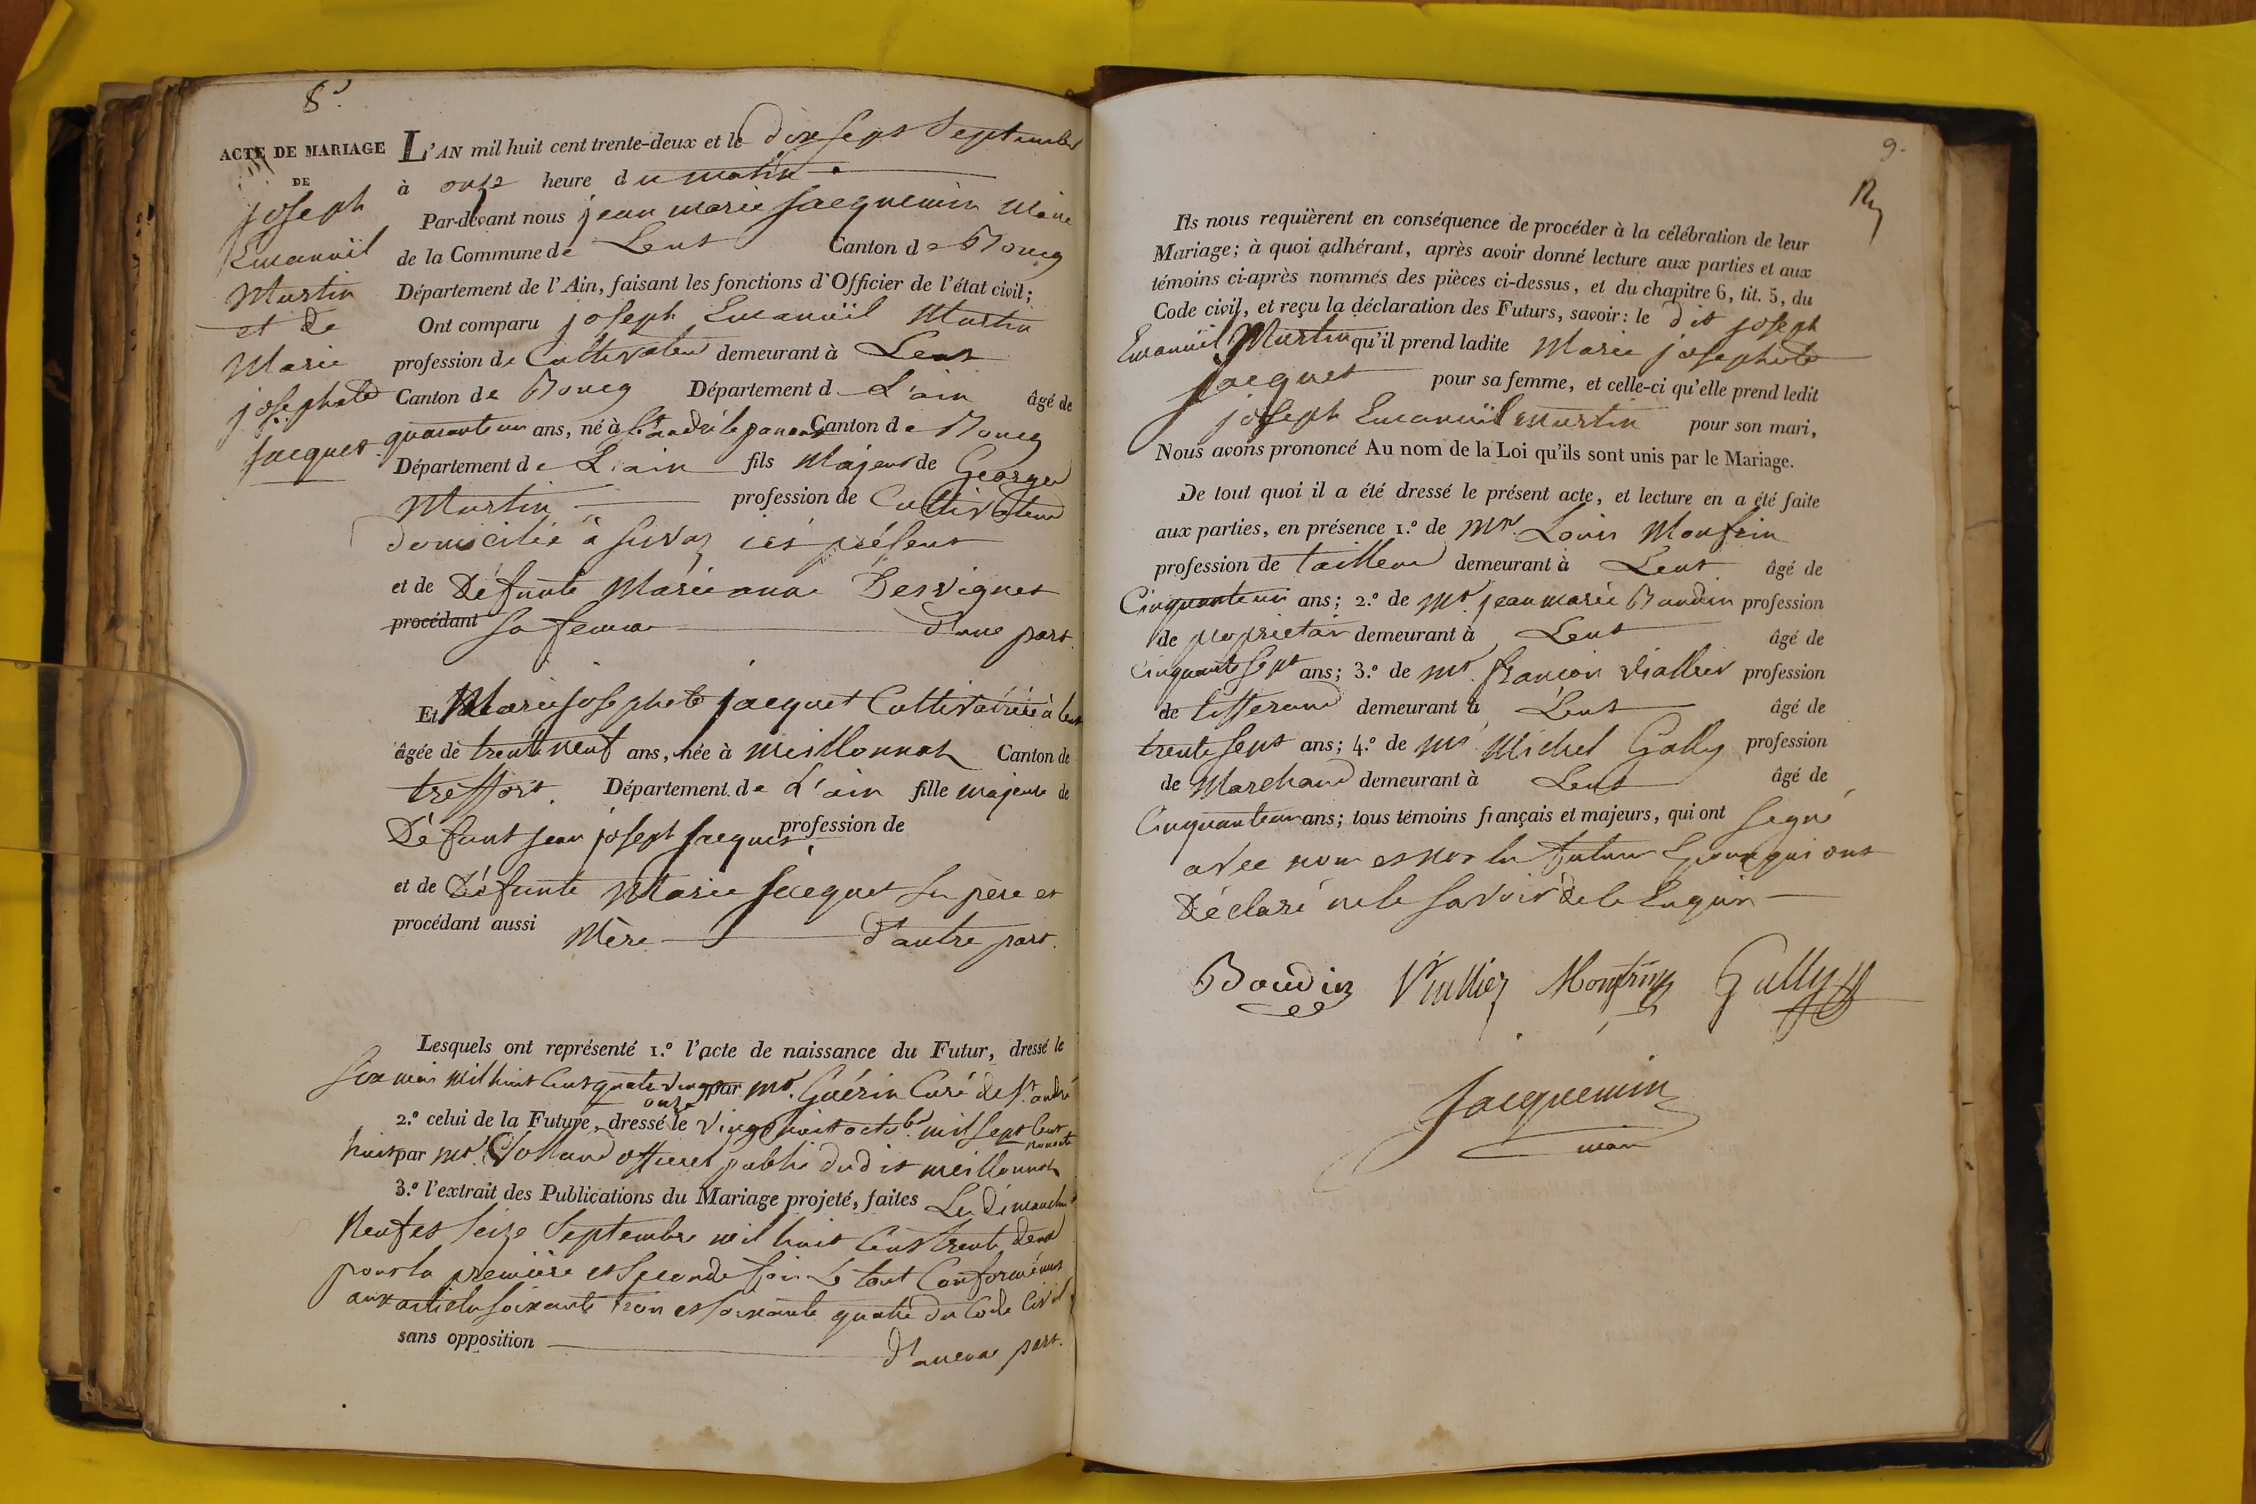 8.
ACTE DE MARIAGE
DE
joseph
Emanuïl
Martin
et de
Marie
josephete
jacquet
L'AN mil huit cent trente-deux et le dix sept Septembre
à onze heure du matin
Par-devant nous jean marie jacquemin Maire
de la Commune de Lent Canton de Bourg
Département de l'Ain, faisant les fonctions d'Officier de l'état civil;
Ont comparu joseph Emanuïl Martin
profession de Cultivateur demeurant à Lent
Canton de Bourg Département d L'ain âgé de
quarante un ans, né à St. andré le panoux Canton de Bourg
Département de L'ain fils Majeur de George
Martin profession de Cultivateur
domicilié à Servaz ici présent
et de Défunte Marie anne Desvignes
procédant sa femme d'une part.
Et Marie josephete jacquet Cultivatrice à Lent
âgée de trente neuf ans, née à Meillonnat Canton de
treffort. Département de L'ain fille majeure de
Défunt jean joseph jacquet profession de
et de Défunte Marie jacquet ses père et
procédant aussi Mère d'autre part.
Lesquels ont représenté 1.º l'acte de naissance du Futur, dressé le
Six mai Mil huit Cent quatre vingt onze par Mr. Guérin Curé de St. andré
2.º celui de la Future, dressé le vingt huit octobre mil sept Cent nonante
huit par Mr. officier public dudit meillonnat
3.º l'extrait des Publications du Mariage projeté, faites Les dimanches
Neuf et Seize Septembre mil huit Cent trente deux
pour la première et Seconde fois Le tout Conformément
aux articles soixante trois et soixante quatre du Code Civil
sans opposition d'aucune part.
9.
Ils nous requièrent en conséquence de procéder à la célébration de leur
Mariage; à quoi adhérant, après avoir donné lecture aux parties et aux
témoins ci-après nommés des pièces ci-dessus, et du chapitre 6, tit. 5, du
Code civil, et reçu la déclaration des Futurs, savoir: le dit joseph
Emanuïl Martin qu'il prend ladite Marie josephete
jacquet pour sa femme, et celle-ci qu'elle prend ledit
joseph Emanuïl Martin pour son mari,
Nous avons prononcé Au nom de la Loi qu'ils sont unis par le Mariage.
De tout quoi il a été dressé le présent acte, et lecture en a été faite
aux parties, en présence 1.º de Mr. Louis Monfrin
profession de tailleur demeurant à Lent âgé de
Cinquante un ans; 2.º de Mr. jean marie Baudin profession
de propriétair demeurant à Lent âgé de
Cinquante sept ans; 3.º de Mr. françois Viallier profession
de tisserand demeurant à Lent âgé de
trente sept ans; 4.º de Mr. Michel Gally profession
de Marchand demeurant à Lent âgé de
Cinquante un ans; tous témoins français et majeurs, qui ont signé
avec nous et non les futurs Epoux qui ont
Déclaré ne le savoir de ce Enquis
Baudin Viallier Monfrin Gally
Jacquemin
maire